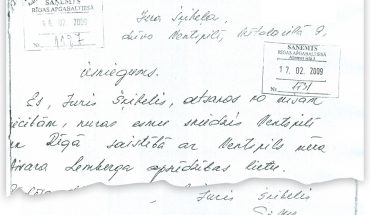 SAŅEMTS
RĪGAS APGABALTIESĀ
16. 02. 2009
Nr. 4197
Jura Šķibeļa,
dzīvo Ventspilī,
SAŅEMTS
RĪGAS APGABALTIESĀ
17. 02. 2009
Nr.
iesniegums.
Es, Juris Šķibelis, atsakos no visām
liecībām, kuras esmu sniedzis Ventspilī
un Rīgā saistībā ar Ventspils mēra
Aivara Lemberga apsūdzības lietu.
Juris Šķibelis